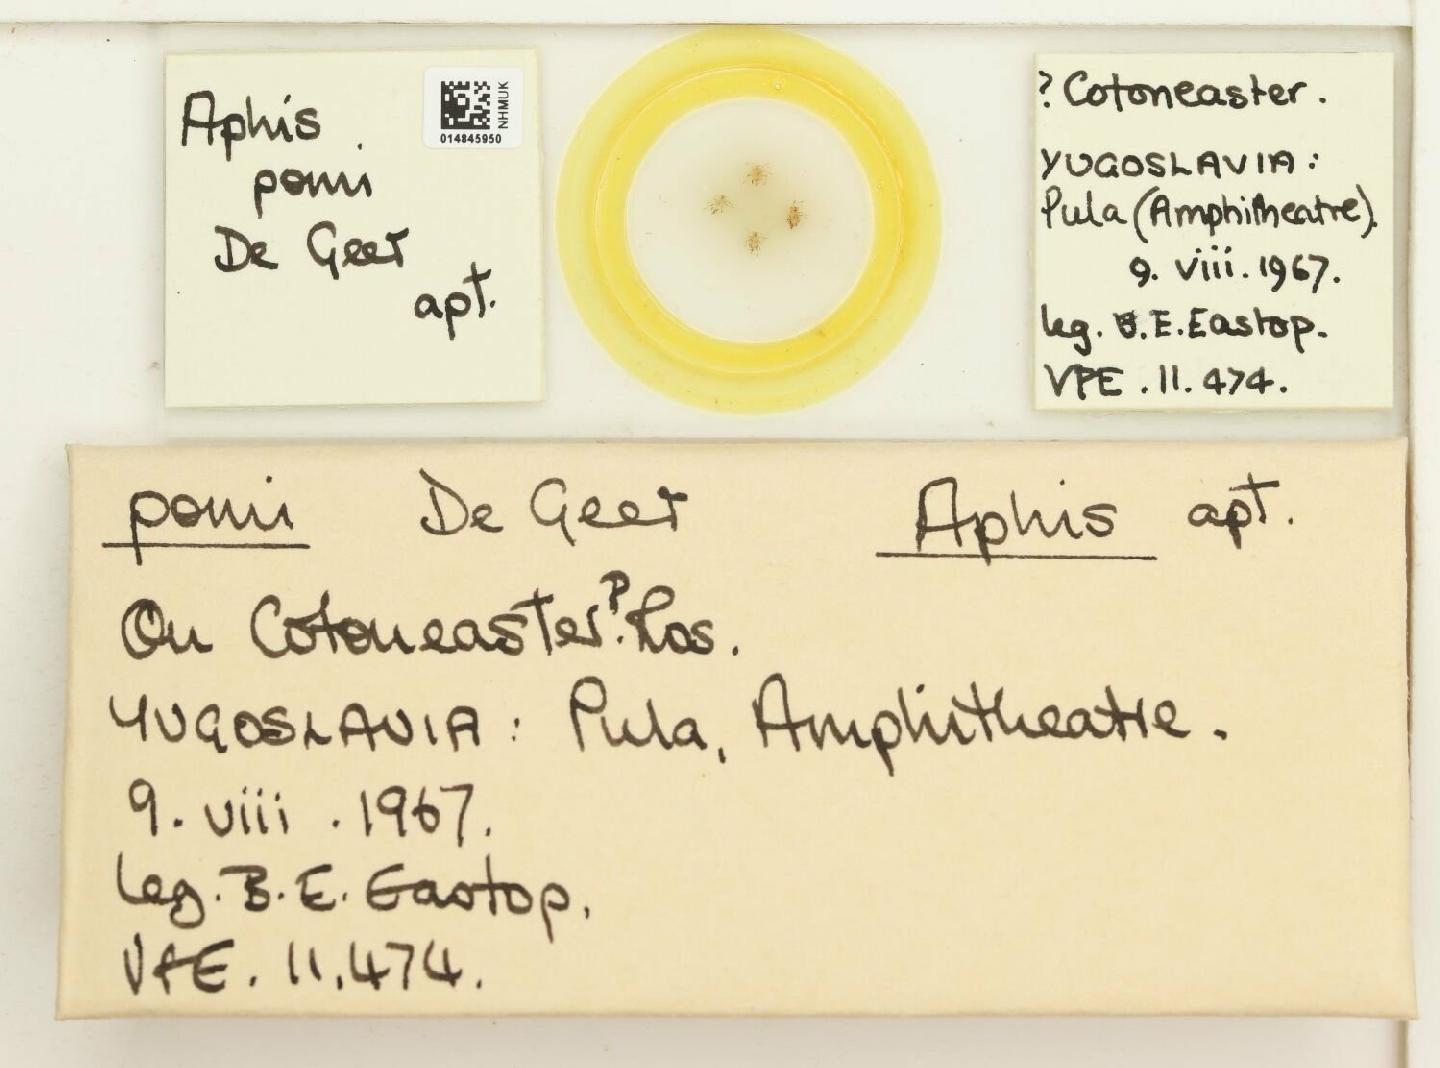 Aphis
pomi
De Geer
apt.
NHMUK
014845950
? Cotoneaster.
YUGOSLAVIA:
Pula (Amphitheatre).
9. viii. 1967.
leg. B.E. Eastop.
VPE. 11. 474.
pomi De Geer Aphis apt.
On Cotoneaster ?. Ros.
YUGOSLAVIA: Pula, Amphitheatre.
9. viii. 1967.
Leg. B. E. Eastop.
VPE. 11. 474.